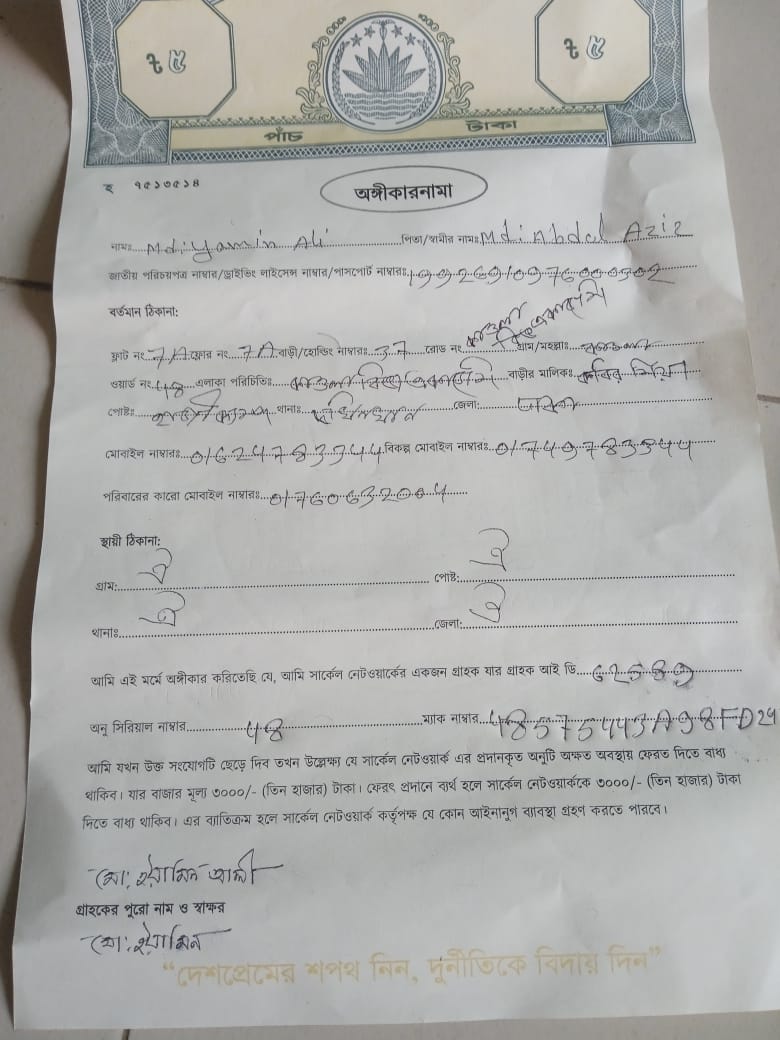 ৳ ৫ ৳ ৫
পাঁচ টাকা
হ ৭৫১৩৫১৪
অঙ্গীকারনামা
নামঃ Md: Yamin Ali পিতা/স্বামীর নামঃ Md: Abdul Aziz
জাতীয় পরিচয়পত্র নাম্বার/ড্রাইভিং লাইসেন্স নাম্বার/পাসপোর্ট নাম্বারঃ
বর্তমান ঠিকানা:
ফ্লাট নং 7A ফ্লোর নং 7A বাড়ী/হোল্ডিং নাম্বারঃ 37 রোড নং গ্রাম/মহল্লাঃ
ওয়ার্ড নং 48 এলাকা পরিচিতিঃ বাড়ীর মালিকঃ কবির মিয়া
পোষ্টঃ থানাঃ জেলা: ঢাকা
মোবাইল নাম্বারঃ বিকল্প মোবাইল নাম্বারঃ
পরিবারের কারো মোবাইল নাম্বারঃ
স্থায়ী ঠিকানা:
গ্রাম: ঐ পোষ্ট: ঐ
থানাঃ ঐ জেলা: ঐ
আমি এই মর্মে অঙ্গীকার করিতেছি যে, আমি সার্কেল নেটওয়ার্কের একজন গ্রাহক যার গ্রাহক আই ডি 62589
অনু সিরিয়াল নাম্বার 48 ম্যাক নাম্বার 48575443A98FD29
আমি যখন উক্ত সংযোগটি ছেড়ে দিব তখন উল্লেক্ষ্য যে সার্কেল নেটওয়ার্ক এর প্রদানকৃত অনুটি অক্ষত অবস্থায় ফেরত দিতে বাধ্য
থাকিব। যার বাজার মূল্য ৩০০০/- (তিন হাজার) টাকা। ফেরৎ প্রদানে ব্যর্থ হলে সার্কেল নেটওয়ার্ককে ৩০০০/- (তিন হাজার) টাকা
দিতে বাধ্য থাকিব। এর ব্যতিক্রম হলে সার্কেল নেটওয়ার্ক কর্তৃপক্ষ যে কোন আইনানুগ ব্যাবস্থা গ্রহণ করতে পারবে।
মো: ইয়ামিন আলী
গ্রাহকের পুরো নাম ও স্বাক্ষর
মো: ইয়ামিন
“দেশপ্রেমের শপথ নিন, দুর্নীতিকে বিদায় দিন”